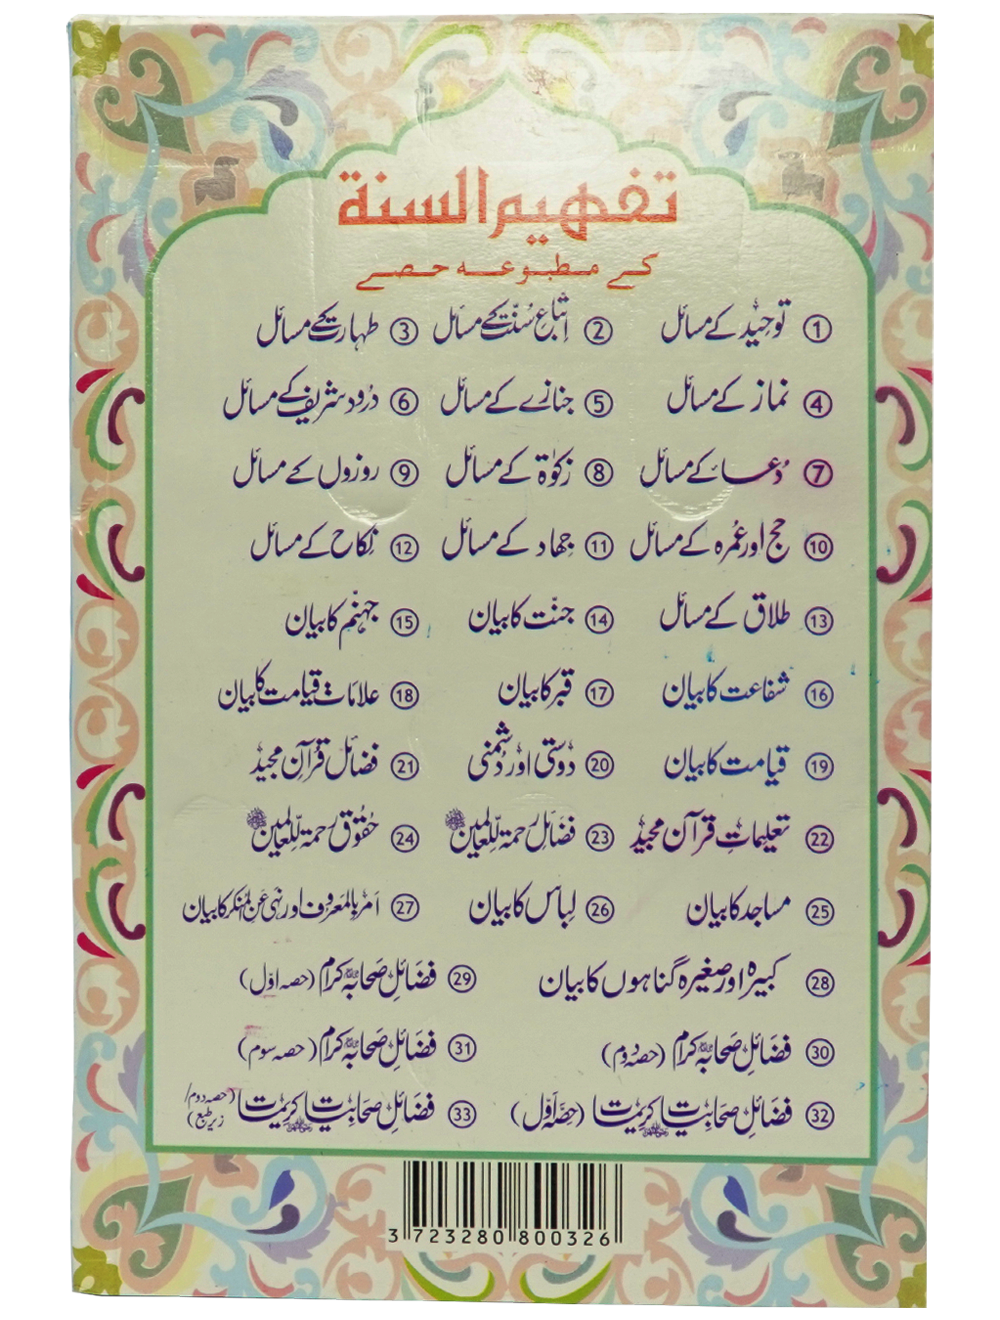 تفہیم السنة
کے مطبوعہ حصے
① توحید کے مسائل ② اتباعِ سُنّت کے مسائل ③ طہارت کے مسائل
④ نماز کے مسائل ⑤ جنازے کے مسائل ⑥ درُود شریف کے مسائل
⑦ دُعا کے مسائل ⑧ زکوٰة کے مسائل ⑨ روزوں کے مسائل
⑩ حج اور عُمرہ کے مسائل ⑪ جہاد کے مسائل ⑫ نکاح کے مسائل
⑬ طلاق کے مسائل ⑭ جنت کا بیان ⑮ جہنم کا بیان
⑯ شفاعت کا بیان ⑰ قبر کا بیان ⑱ علاماتِ قیامت کا بیان
⑲ قیامت کا بیان ⑳ دوستی اور دشمنی ㉑ فضائل قرآن مجید
㉒ تعلیماتِ قرآن مجید ㉓ فضائل رحمة للعٰلمین ﷺ ㉔ حقوق رحمة للعٰلمین ﷺ
㉕ مساجد کا بیان ㉖ لباس کا بیان ㉗ امر بالمعروف اور نہی عن المنکر کا بیان
㉘ کبیرہ اور صغیرہ گناہوں کا بیان ㉙ فضائلِ صحابہ کرام (حصہ اوّل)
㉚ فضائلِ صحابہ کرام (حصہ دوم) ㉛ فضائلِ صحابہ کرام (حصہ سوم)
㉜ فضائلِ صحابیات کریمات (حصّہ اَوّل) ㉝ فضائلِ صحابیات کریمات (حصہ دوم/زیر طبع)
3 723280 800326